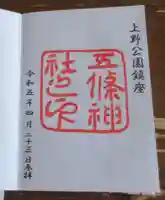 上野公園鎮座
五條神
社之印
令和五年四月二十三日奉拝